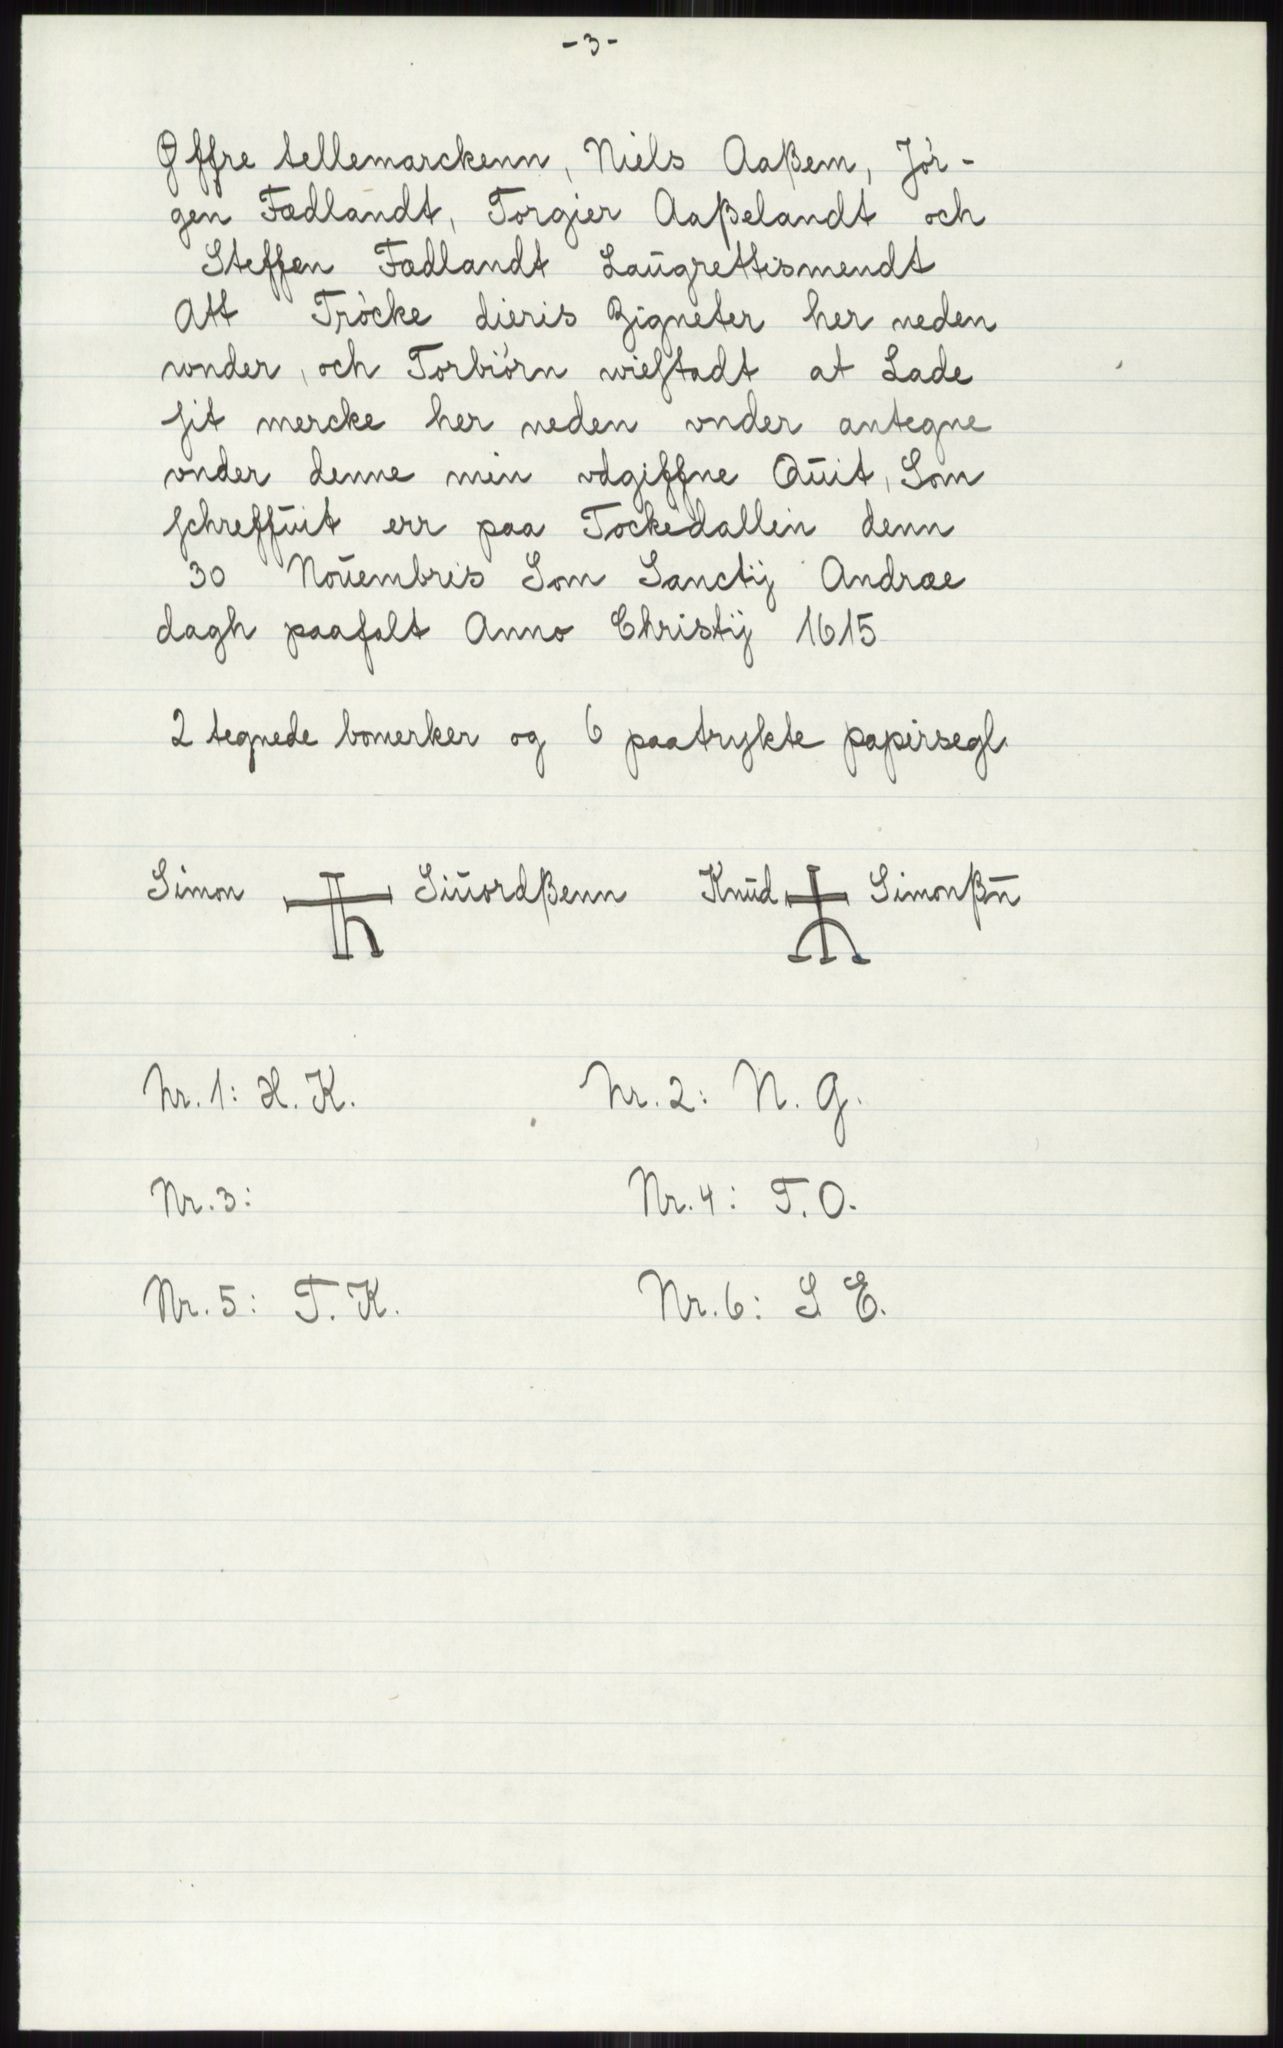 - 3 -
Øffre tellemarckenn, Niels Aaßem, Jör-
gen Fœdlandt, Torgier Aaßelandt och
Steffen Fœdlandt Laŭgrettismendt
Att Tröcke dieris Zigneter her neden
vnder, och Torbiörn wiestadt at Lade
sit mercke her neden vnder antegne
vnder denne min vdgiffne Qŭit, Som
schreffŭit err paa Tockedallin denn
30 Noŭembris Som Sanctij Andrae
dagh paafalt Anno Christij 1615
2 tegnede bomerker og 6 paatrykte papirsegl.
Simon Siŭordßenn Knŭd Simonßn̄
Nr. 1: H. K. Nr. 2: N. G.
Nr. 3: Nr. 4: T. O.
Nr. 5: T. K. Nr. 6: S. E.